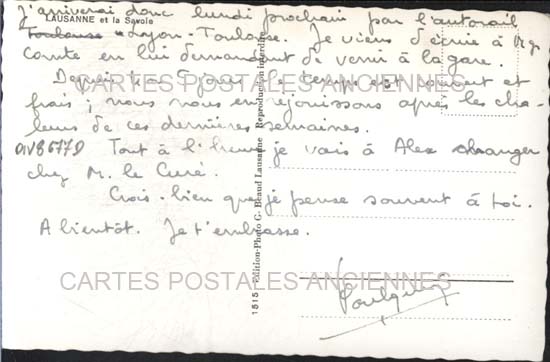 J'arriverai donc lundi prochain par l'autorail
LAUSANNE et la Savoie
Toulouse - Lyon - Toulouse. Je viens d'écrire à Mgr
Comte en lui demandant de venir à la gare.
Depuis 4 ou 5 jours le temps est couvert et
frais ; nous nous en réjouissons après les cha-
leurs de ces dernières semaines.
DIV8677D Tout à l'heure je vais à Alex changer
chez M. le Curé.
Crois-bien que je pense souvent à toi.
A bientôt. Je t'embrasse.
CARTES POSTALES ANCIENNES
CARTES POSTALES ANCIENNES
1515 - Edition-Photo G. Beaud Lausanne Reproduction interdite